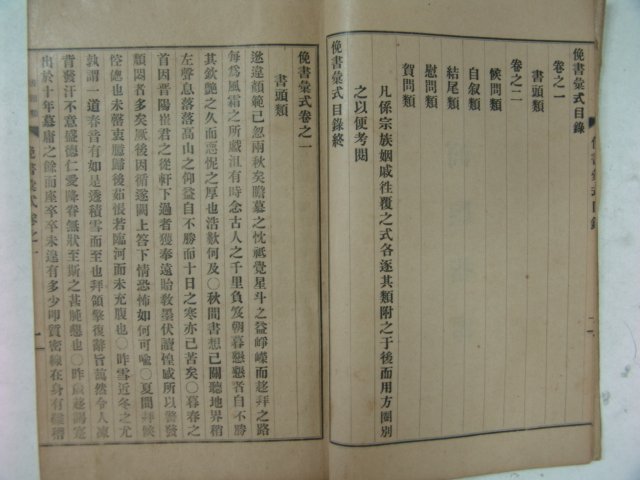 俛書彙式目錄
卷之一
書頭類
卷之二
候問類
自叙類
結尾類
慰問類
賀問類
凡係宗族姻戚徃覆之式各逐其類附之于後而用方圈別
之以便考閱
俛書彙式目錄終
俛書彙式目錄
俛書彙式卷之一
書頭類
違顔範已忽兩秋矣瞻慕之忱祗覺星斗之益崢嶸而趍拜之路
每爲風霜之所戱沮有時念古人之千里負笈朝暮懇懇者自不勝
其欽艶之久而慙怩之厚也浩歎何及○秋間書想已關聽地界稍
左聲息落落高山之仰益自不勝而十日之寒亦已苦矣○暮春之
首因晋陽崔君之從軒下過者獲奉遠貽敎墨伏讀惶感所以警發
頑悶者多矣厥後因循遂闕上答下情恐怖如何可喩○夏間拜候
悾傯也未罄衷臆歸後茹悵若臨河而未充腹也○昨雪近冬之尤
孰謂一道春音有如是透積雪而至也拜領擎復辭旨藹然令人凍
背發汗不意盛德仁愛降眷無狀至斯之甚悚懇也○昨歲趍
出於十年慕庸之餘而座卒卒未遑有多少叩質密線在身有
俛書彙式卷之一